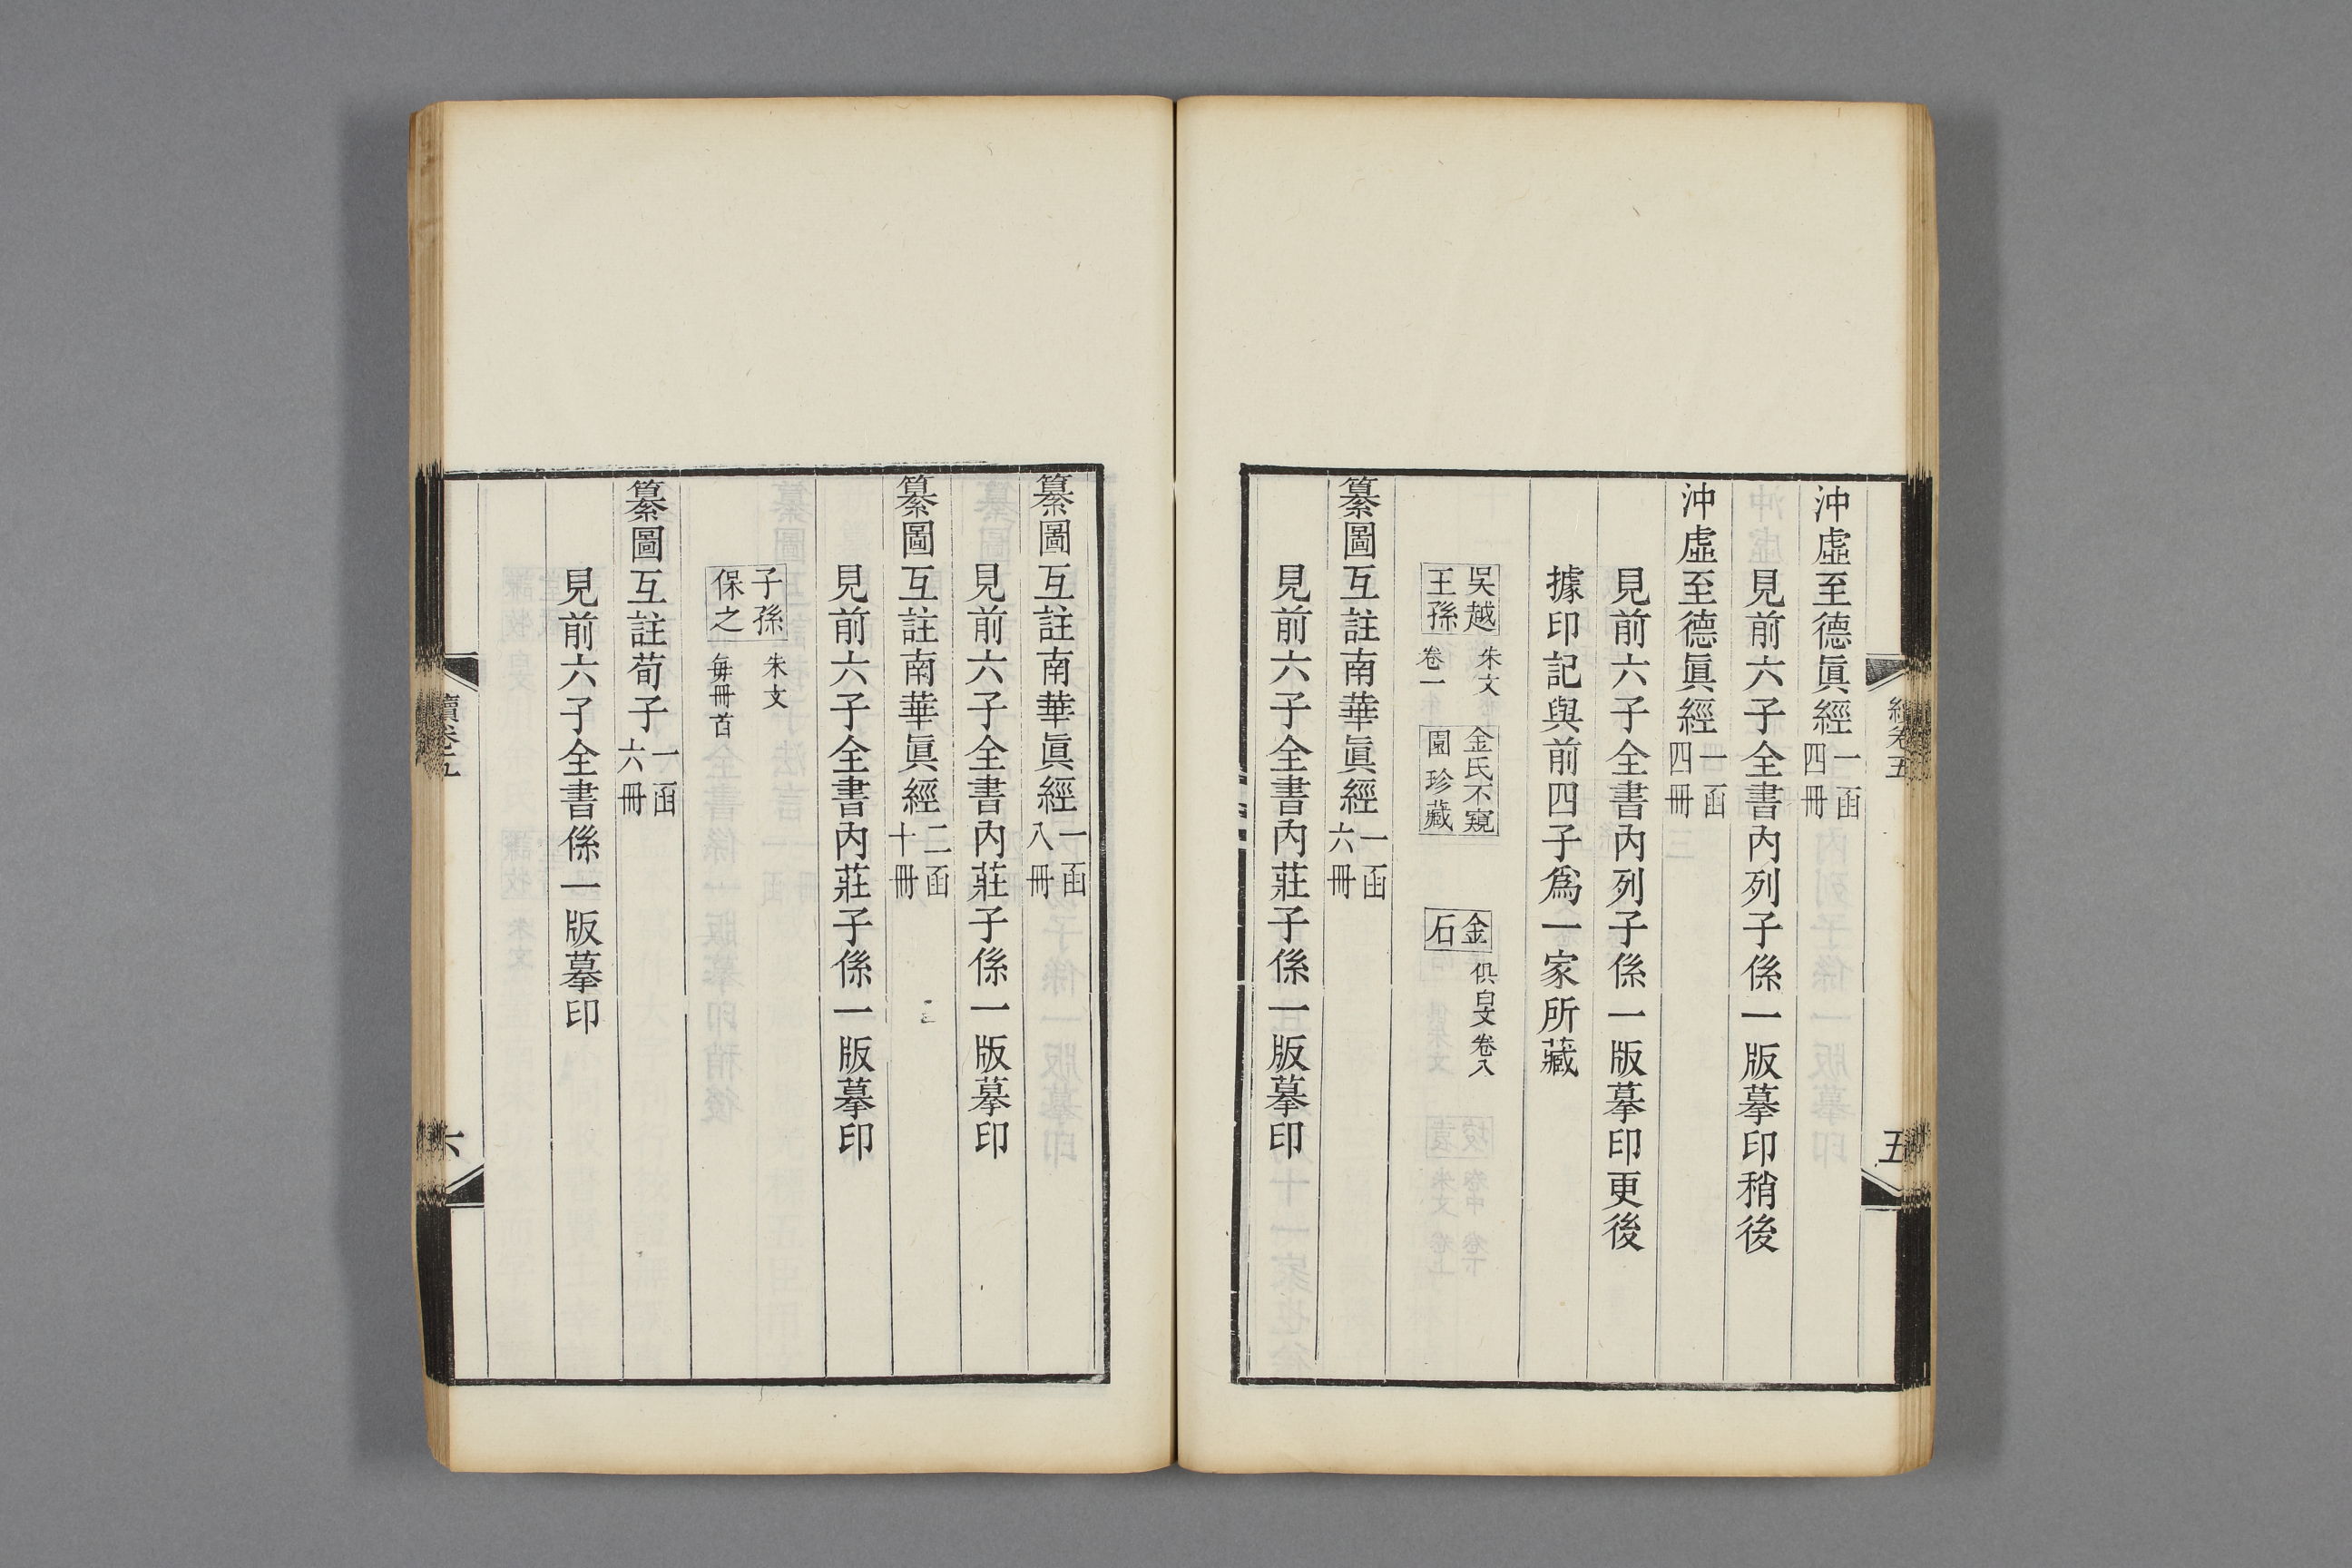 沖虛至德眞經一函四冊
見前六子全書內列子係一版摹印稍後
沖虛至德眞經一函四冊
見前六子全書內列子係一版摹印更後
據印記與前四子爲一家所藏
吳越王孫 朱文卷一 金氏不窺園珍藏 金石 俱白文卷八
纂圖互註南華眞經一函六冊
見前六子全書內莊子係一版摹印
五
纂圖互註南華眞經一函八冊
見前六子全書內莊子係一版摹印
纂圖互註南華眞經二函十冊
見前六子全書內莊子係一版摹印
子孫保之 朱文每冊首
纂圖互註荀子一函六冊
見前六子全書係一版摹印
續卷五
六